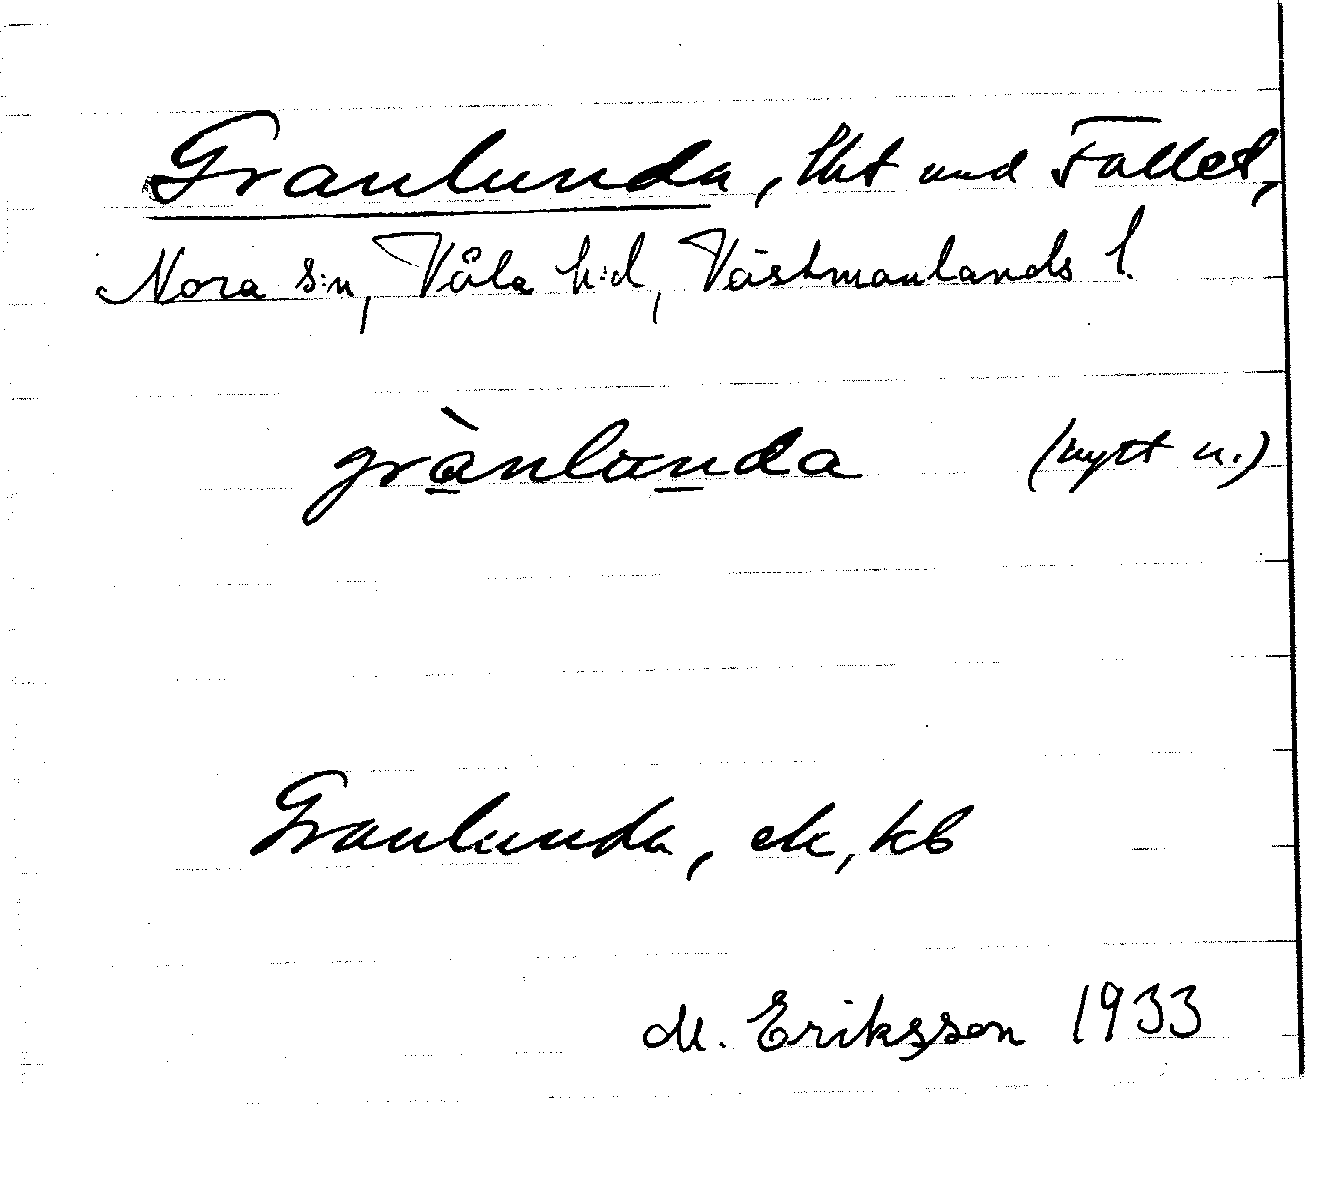 Granlunda, lht und Fallet,
Nora s:n, Våla h:d, Västmanlands l.
grànlunda (nytt n.)
Granlunda, ek, kb
M. Eriksson 1933